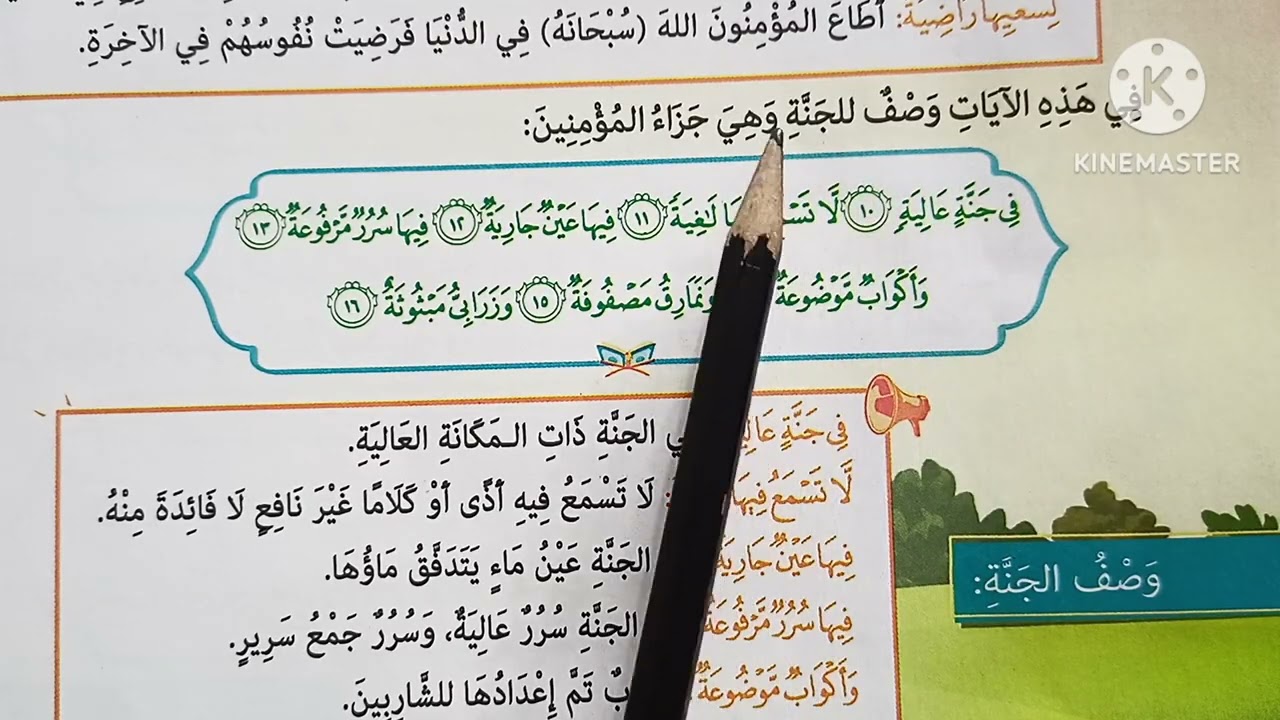 لِسَعْيِهَا رَاضِيَةٌ: أَطَاعَ المُؤْمِنُونَ اللهَ (سُبْحَانَهُ) فِي الدُّنْيَا فَرَضِيَتْ نُفُوسُهُمْ فِي الآخِرَةِ.
فِي هَذِهِ الآيَاتِ وَصْفٌ للجَنَّةِ وَهِيَ جَزَاءُ المُؤْمِنِينَ:
K
KINEMASTER
فِي جَنَّةٍ عَالِيَةٍ ١٠ لَّا لَٰغِيَةً ١١ فِيهَا عَيْنٌ جَارِيَةٌ ١٢ فِيهَا سُرُرٌ مَّرْفُوعَةٌ ١٣
وَأَكْوَابٌ مَّوْضُوعَةٌ وَنَمَارِقُ مَصْفُوفَةٌ ١٥ وَزَرَابِيُّ مَبْثُوثَةٌ ١٦
فِي جَنَّةٍ الجَنَّةِ ذَاتِ الـمَكَانَةِ العَالِيَةِ.
لَّا تَسْمَعُ فِيهَا لَا تَسْمَعُ فِيهِ أَذًى أَوْ كَلَامًا غَيْرَ نَافِعٍ لَا فَائِدَةَ مِنْهُ.
فِيهَا عَيْنٌ جَارِيَةٌ الجَنَّةِ عَيْنُ مَاءٍ يَتَدَفَّقُ مَاؤُهَا.
فِيهَا سُرُرٌ مَّرْفُوعَةٌ الجَنَّةِ سُرُرٌ عَالِيَةٌ، وَسُرُرٌ جَمْعُ سَرِيرٍ.
وَأَكْوَابٌ مَّوْضُوعَةٌ تَمَّ إِعْدَادُهَا للشَّارِبِينَ.
وَصْفُ الجَنَّةِ: